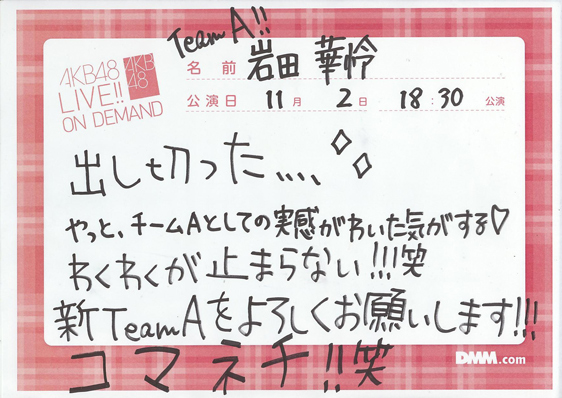 Team A!!
AKB48
LIVE!!
ON DEMAND
AKB
48
名前 岩田 華怜
公演日 11月 2日 18:30 公演
出し切った....
やっと、チームAとしての実感がわいた気がする♡
わくわくが止まらない!!!笑
新TeamAをよろしくお願いします!!!
コマネチ!!笑
DMM.com